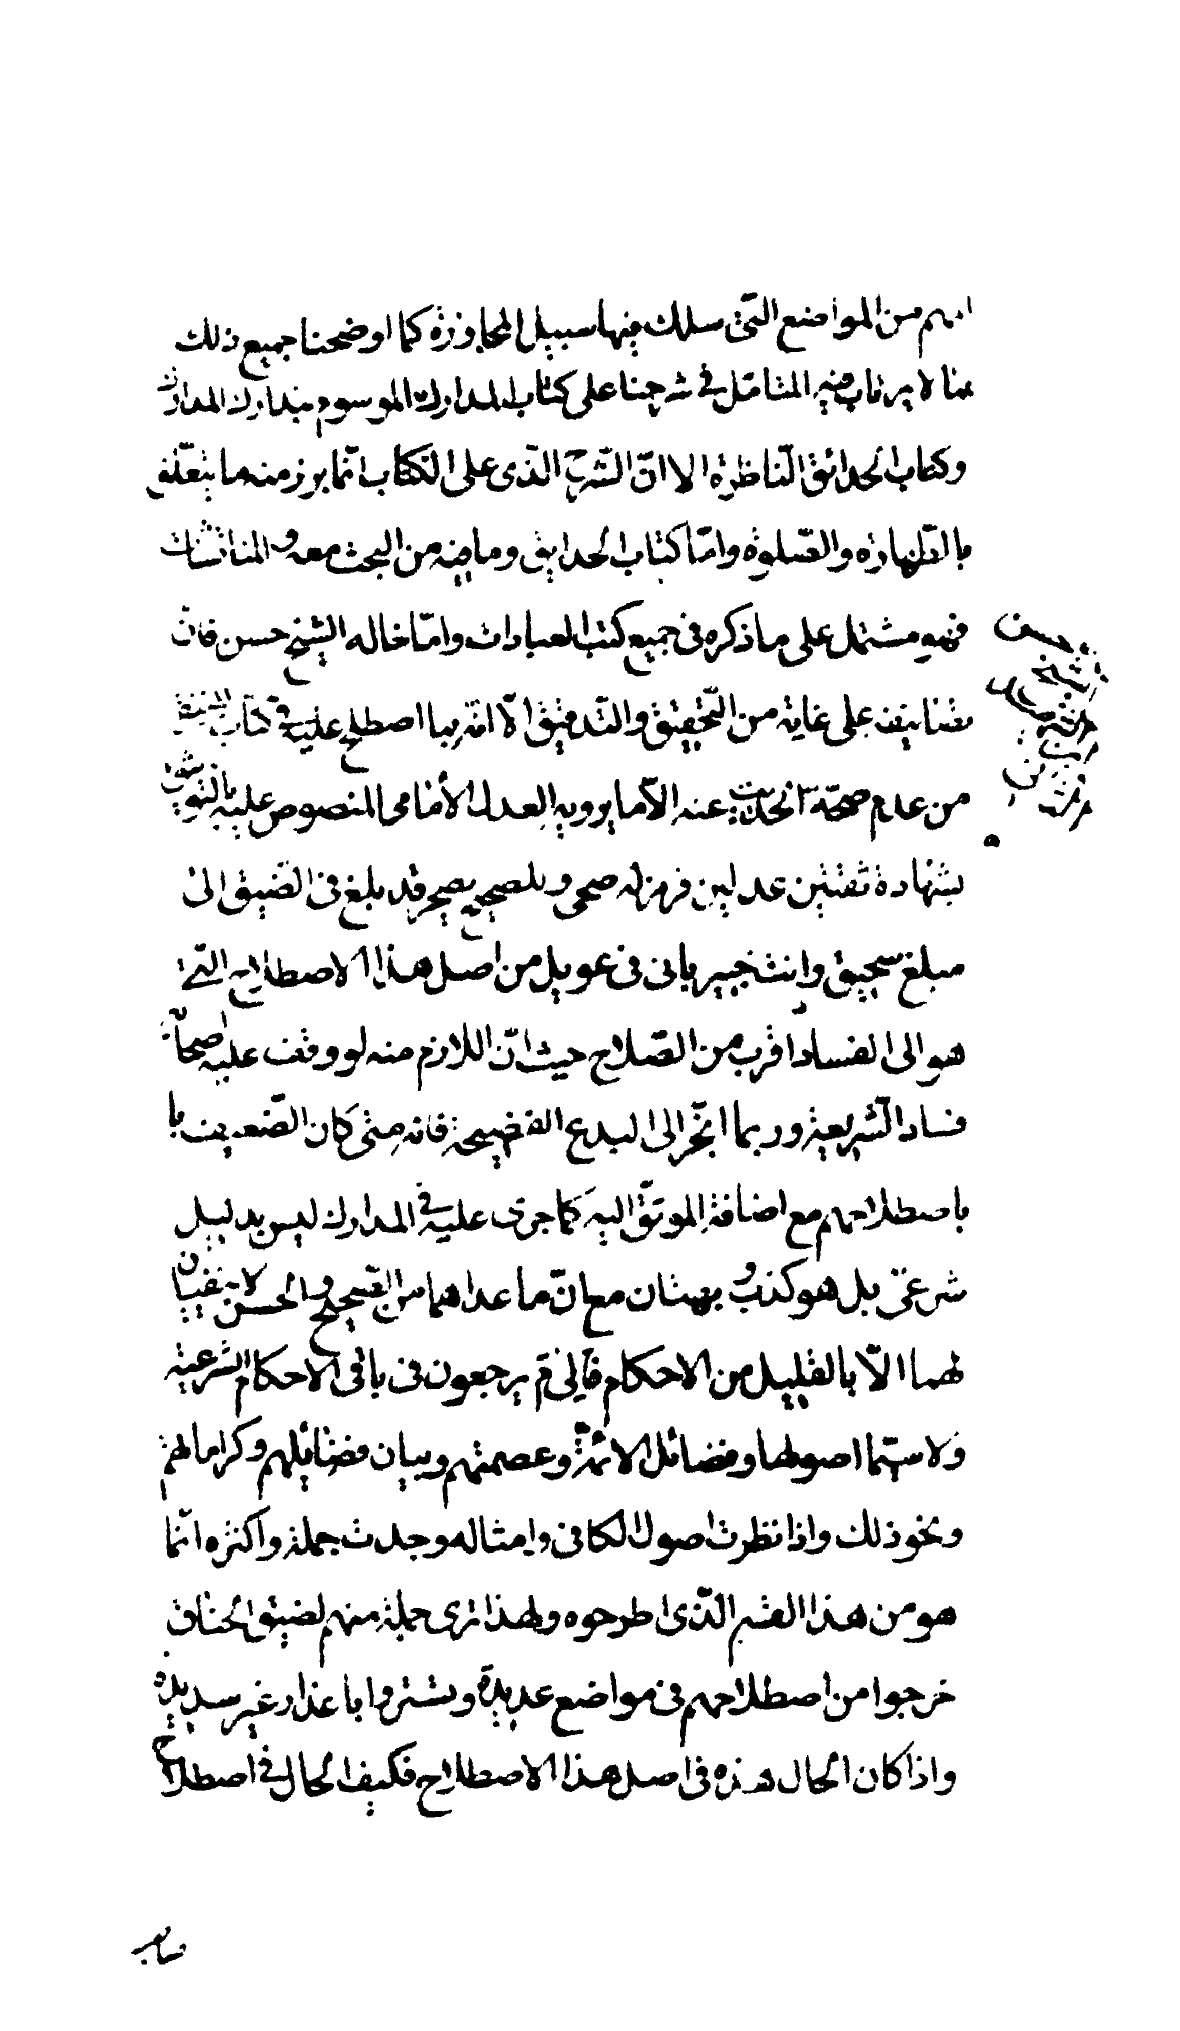 من المواضع التي سلك فيها سبيل المجاوزة كما اوضحنا جميع ذلك
بما لا يرتاب فيه المتامّل في شرحنا على كتاب المدارك الموسوم بتدارك المدارك
وكتاب الحدائق النّاظرة الا انّ الشّرح الذى على الكتاب انّما برز منه ما يتعلّق
بالطّهارة والصّلوة وامّا كتاب الحدايق وما فيه من البحث معه و المناقشات
فهو مشتمل على ما ذكره في جميع كتب العبادات وامّا خاله الشيخ حسن فان
تصانيفه على غاية من التّحقيق والتّدقيق الّا انّه بما اصطلح عليه في كتاب المنتقى
من عدم صحّة الحديث عنه الّا ما يرويه العدل الأمامى المنصوص عليه بالتّوثيق
بشهادة ثقتين عدلين فرمزله صحى وللصحيح بصحر قد بلغ في الضّيق الى
مبلغ سحيق وانت خبير بانى في عويل من اصل هذا الاصطلاح التّى
هو الى الفساد اقرب من الصّلاح حيث انّ اللازم منه لو وقف عليه اصحابه
فساد الشّريعة وربما انجّر الى البدع الفضيحة فانه متى كان الضّعيف با
باصطلاحهم مع اضافة الموثّق اليه كما جرى عليه في المدارك ليس بدليل
شرعىّ بل هو كذب و بهتان مع انّ ما عداهما من الصّحيح و الحسن لا يفيان
لهما الّا بالقليل من الاحكام فالى مَ يرجعون في باقى الاحكام الشرعية
ولا سيّما اصولها وفضائل الائمّة وعصمتهم وبيان فضائلهم وكراماتهم
ونحو ذلك واذا نظرت اصول الكافى وامثاله وجدت جملة واكثره انّما
هو من هذا القسم الّذى اطرحوه ولهذا ترى جملة منهم لضيق الخناق
خرجوا من اصطلاحهم في مواضع عديدة وتستروا باعذار غير سديدة
واذا كان الحال هذه في اصل هذا الاصطلاح فكيف الحال في اصطلاح